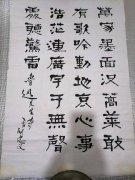 萬家墨面没蒿萊敢
有歌吟動地哀心事
浩茫連廣宇于無聲
處聽驚雷
魯迅